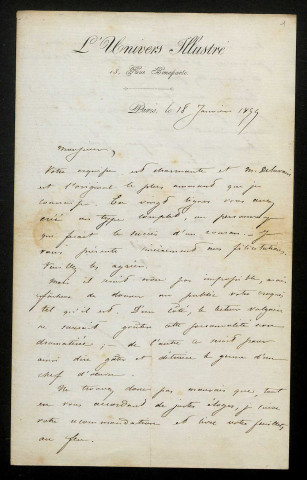 L'Univers Illustré
18, Rue Bonaparte
Paris, le 18 Janvier 1899
Monsieur,
Votre esquisse est charmante et M. Delauvais
est l'original le plus amusant que je
connaisse. En vingt lignes vous avez
créé un type complet, un personnage
qui ferait le succès d'un roman. Je
vous présente sincèrement mes félicitations.
Veuillez les agréer.
Mais il serait non pas impossible, mais
de donner au public votre croquis
tel qu'il est. D'un côté, le lecteur vulgaire
ne saurait goûter cette personnalité non
dramatisée; de l'autre ce serait pour
ainsi dire gâter et détruire le germe d'un
chef d'œuvre.
Ne trouvez donc pas mauvais que, tout
en vous accordant de justes éloges, je suive
votre recommandation et livre votre feuillet
au feu.